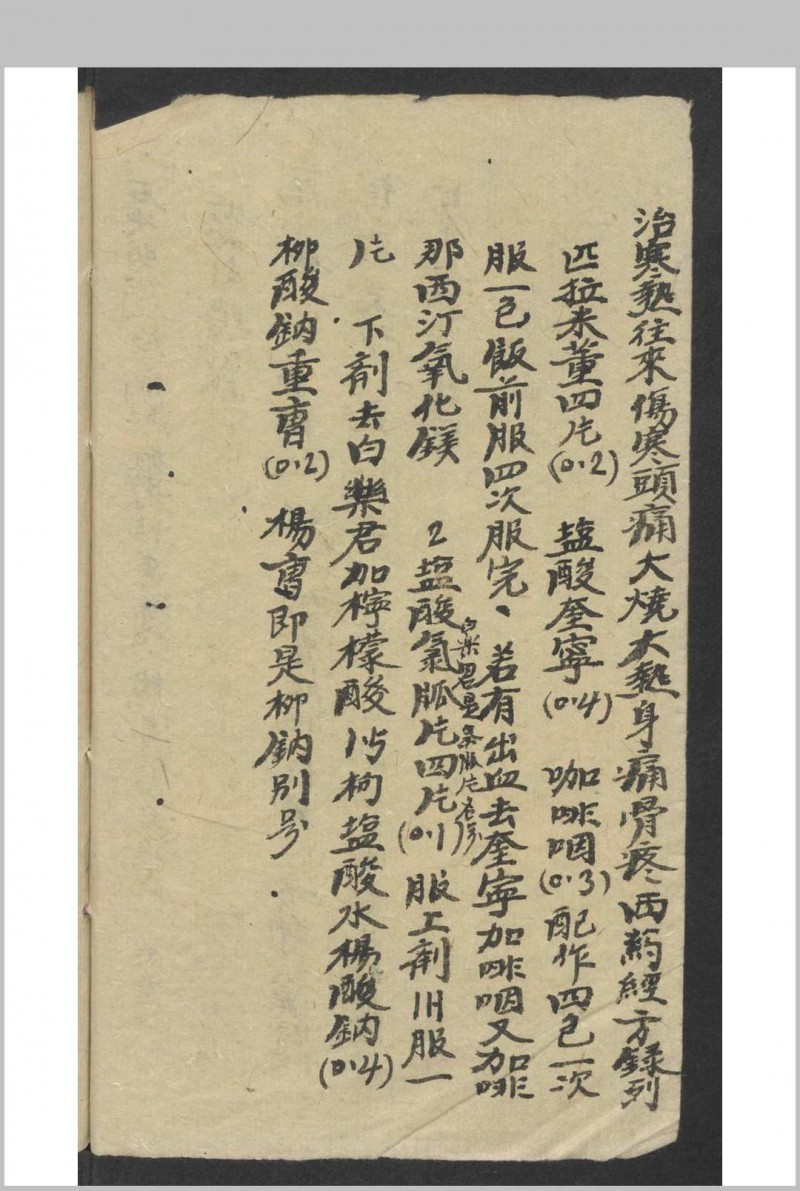 治寒熱往來傷寒頭痛大燒大熱身痛骨疼西药經方錄列
匹拉米董四片(0.2) 盐酸奎寧(0.4) 咖啡咽(0.3)配作四包一次
服一包飯前服四次服完、若有出血去奎寧加啡咽又加啡
白樂君是氯胍片名號
那西汀氧化鎂 2盐酸氯胍片四片(0.1)服工剂1H服一
片 下剂去白樂君加檸檬酸 枸盐酸水楊酸鈉(0.4)
柳酸鈉重曹(0.2) 楊曹即是柳鈉别号